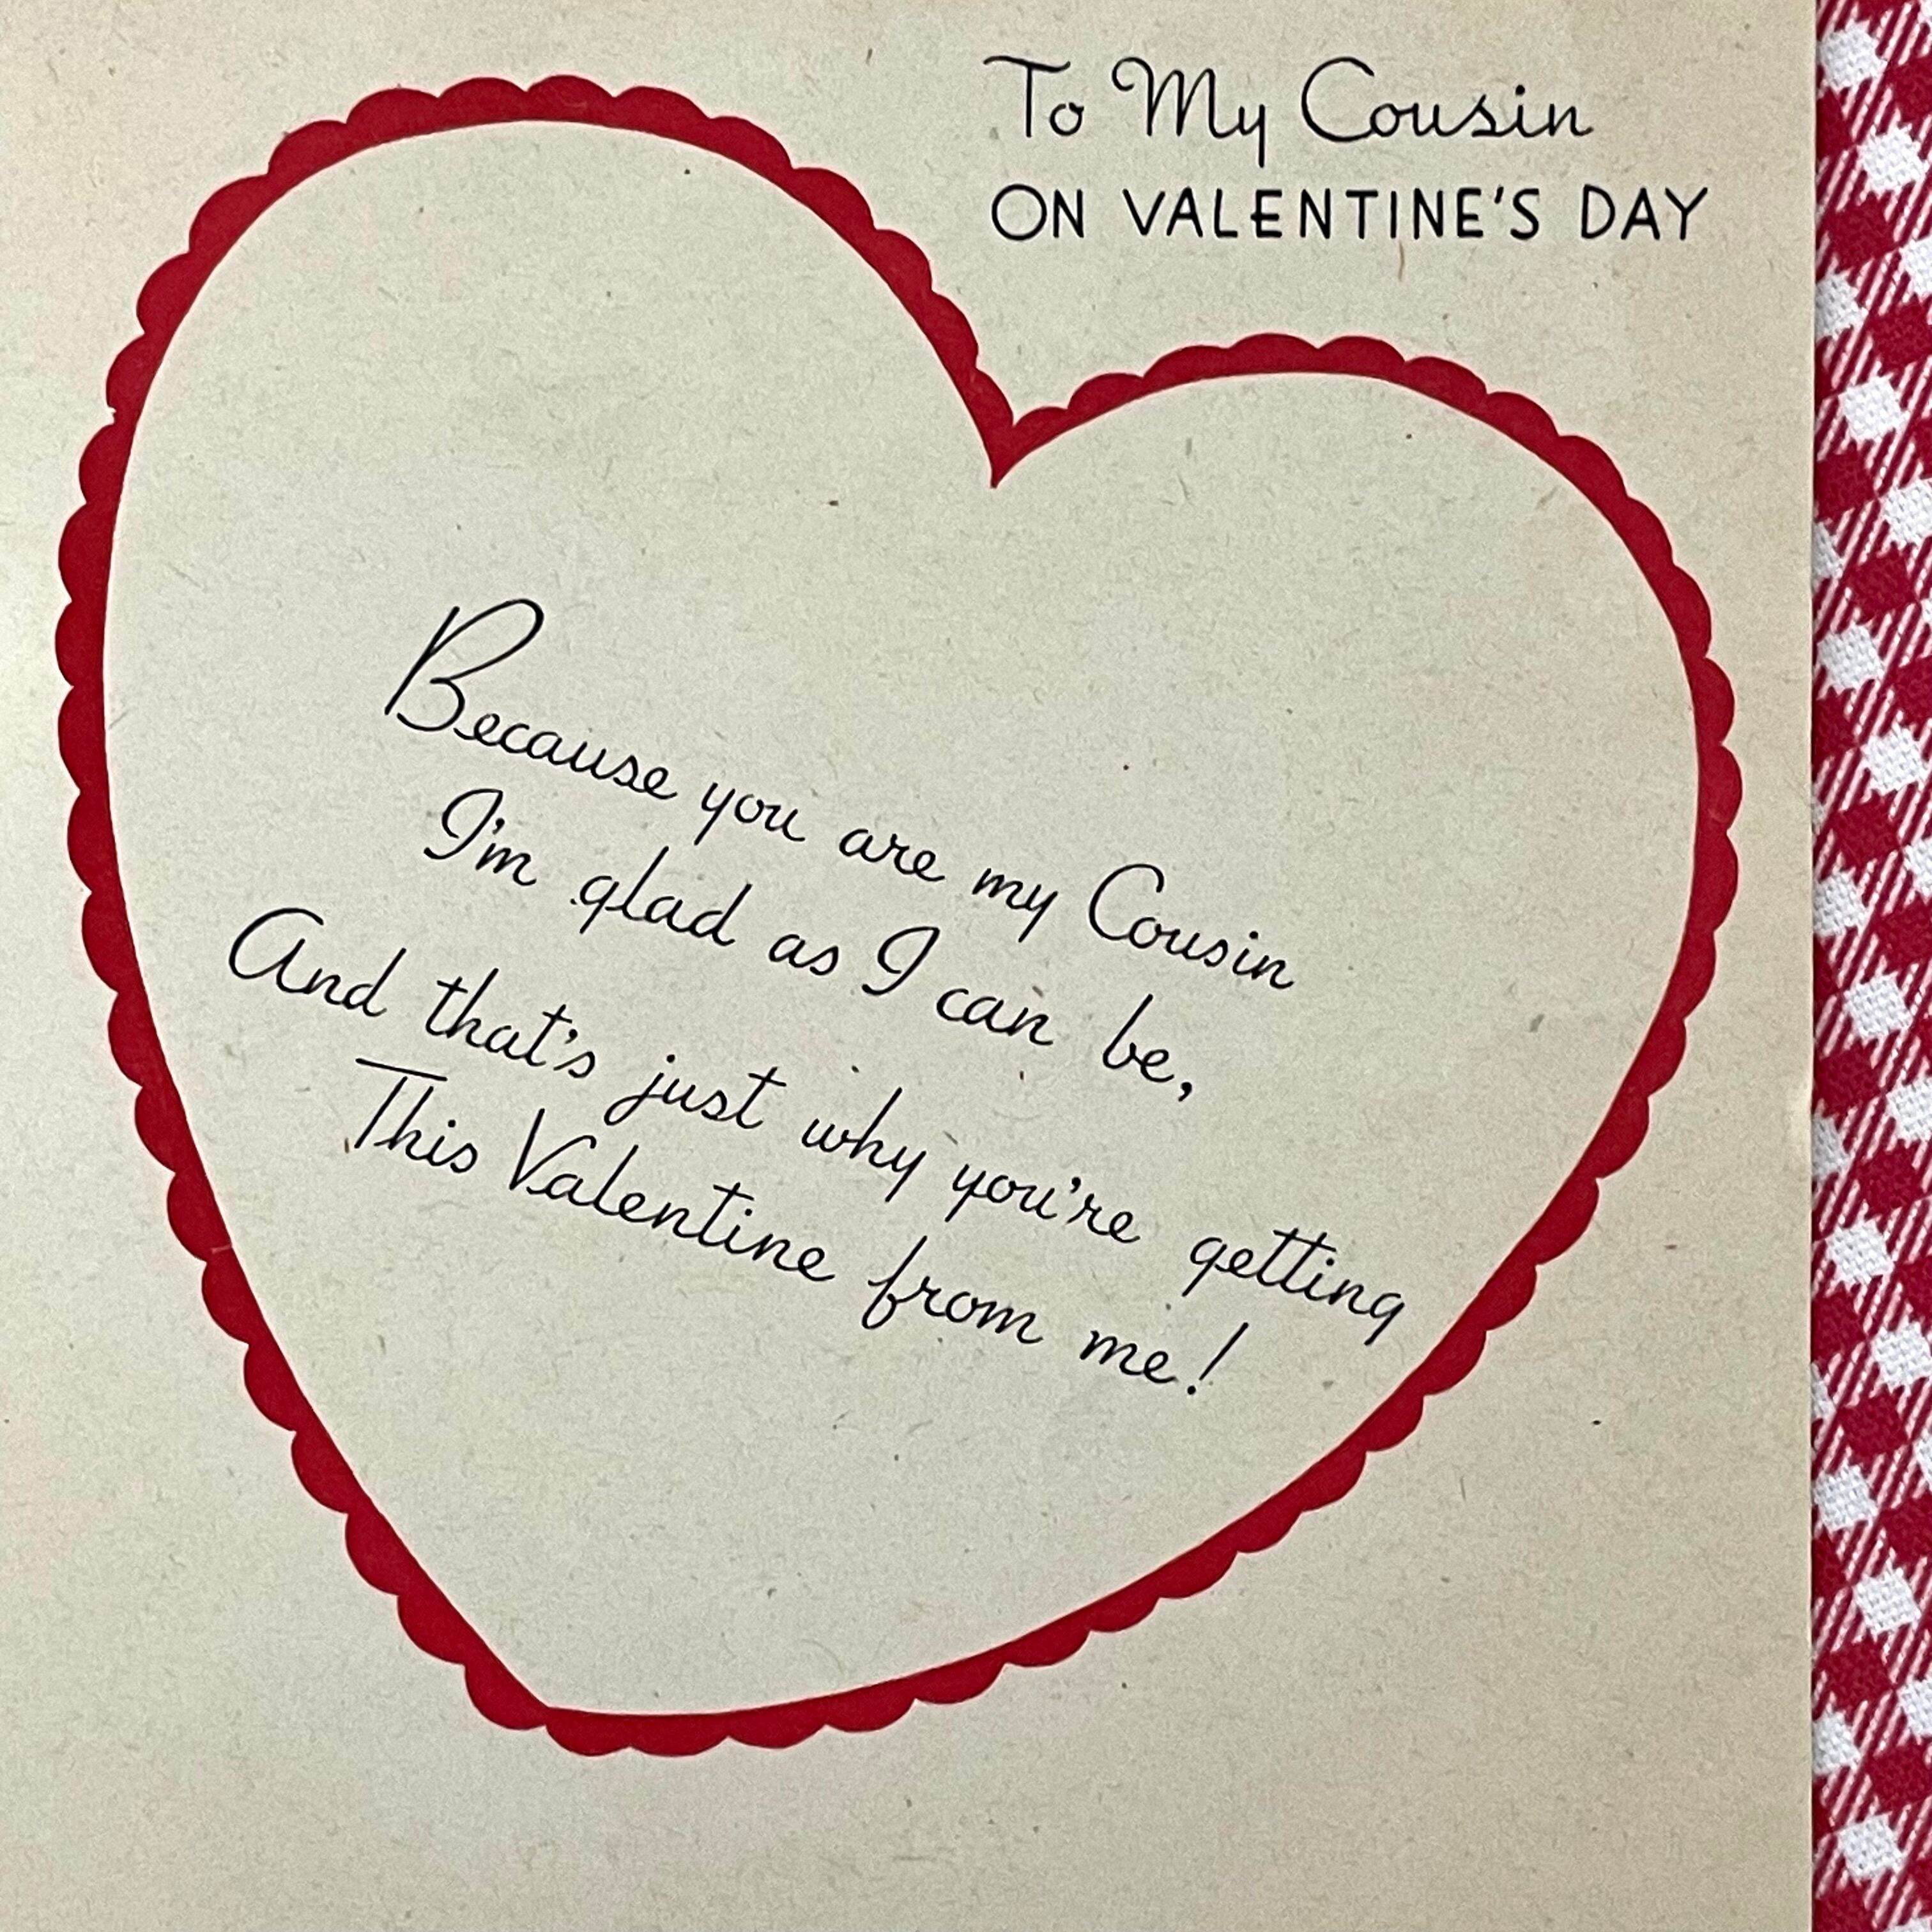 To My Cousin
ON VALENTINE'S DAY
Because you are my Cousin
I'm glad as I can be,
And that's just why you're getting
This Valentine from me!